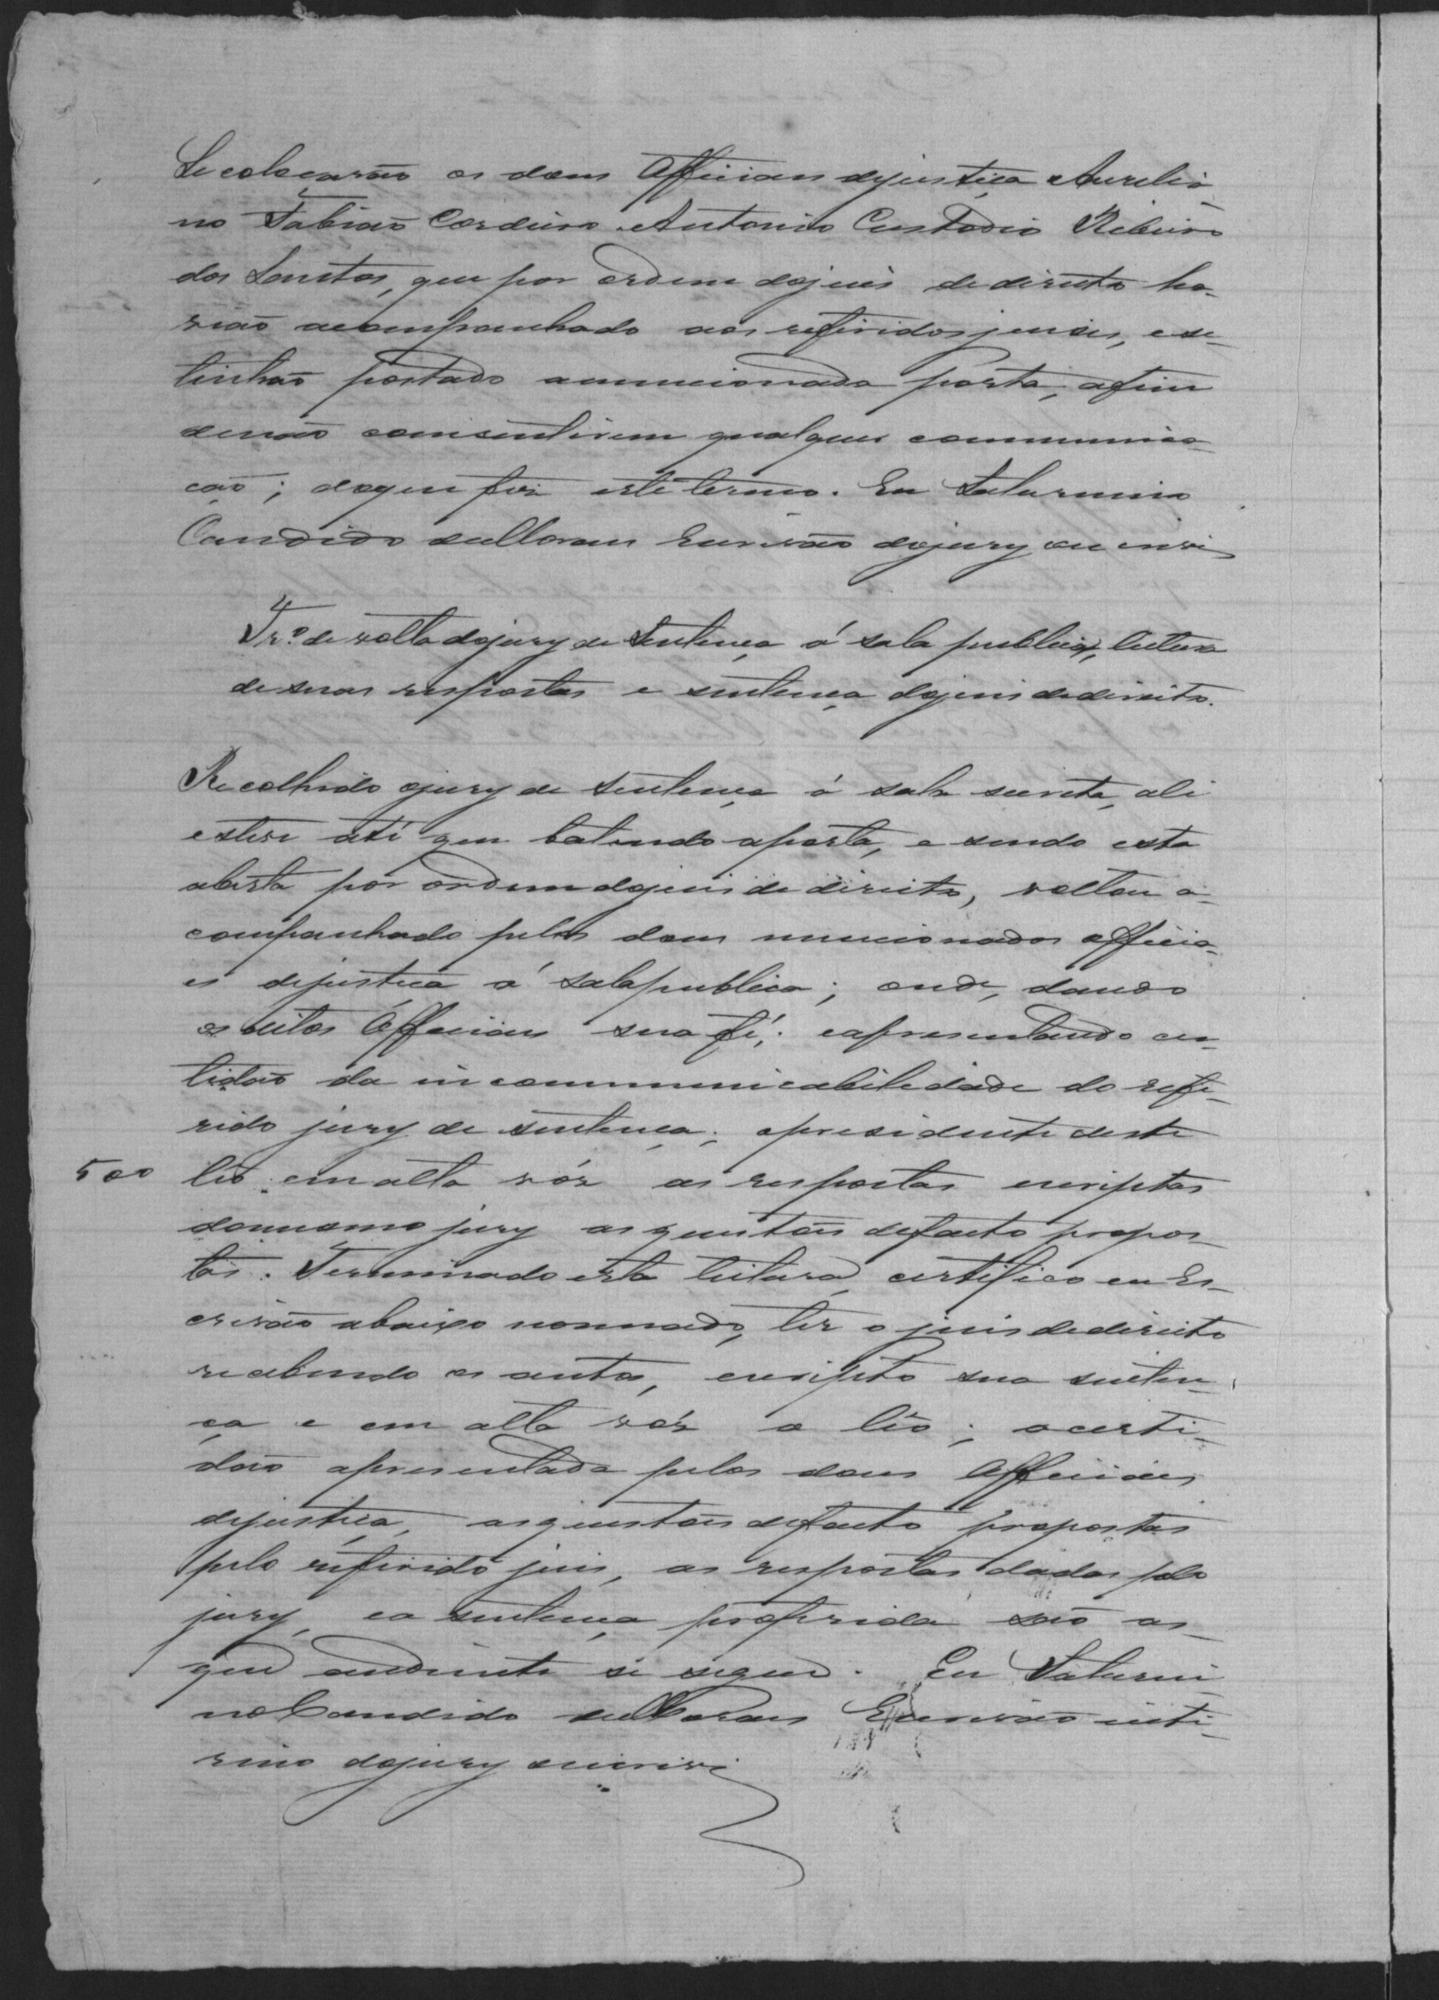 Se colocarão os dous Officiaes dejustiça Aurelia-
no Fabião Cordeiro Antonio Custodio Ribeiro
dos Santos, que por ordem dojuis dedireito ha-
vião acompanhado aos referidos juises, e se-
tinhão postado amencionada porta, afim
denão consentirem qualquer communica-
ção; doque fis este termo. Eu Saturnino
Candido Escrivão dojury escrevi
Tr.º de volta dojury de Sentença á sala publica, leitura
desuas respostas e sentença dojuis dedireito.
Recolhido ojury de sentença á sala secreta, ali
esteve até que batendo aporta, e sendo esta
aberta por ordem dojuis de direito, voltou a-
companhado pelos dous mencionados officia-
es dejustiça á salapublica; onde, dando
os ditos Officiaes sua fé; eapresentando cer-
tidão da incommunicabilidade do refe-
rido jury de sentença; opresidente deste
500 lêo em alta vós as respostas escriptas
domesmo jury as questões defacto propos-
tas. Terminado esta leitura, certifico eu Es-
crivão abaixo nomeado, ter o juis dedireito
recebendo os autos, escripto sua senten-
ça e em alta vós a lêo; acerti-
dão apresentada pelos dous Officiaes
dejustiça, asquestões defacto propostas
pelo referido juis, as respostas dadas pelo
jury, ea sentença proferida são as-
que endiante se segue. Eu Saturni
noCandido Escrivão inte-
rino dojury escrevi